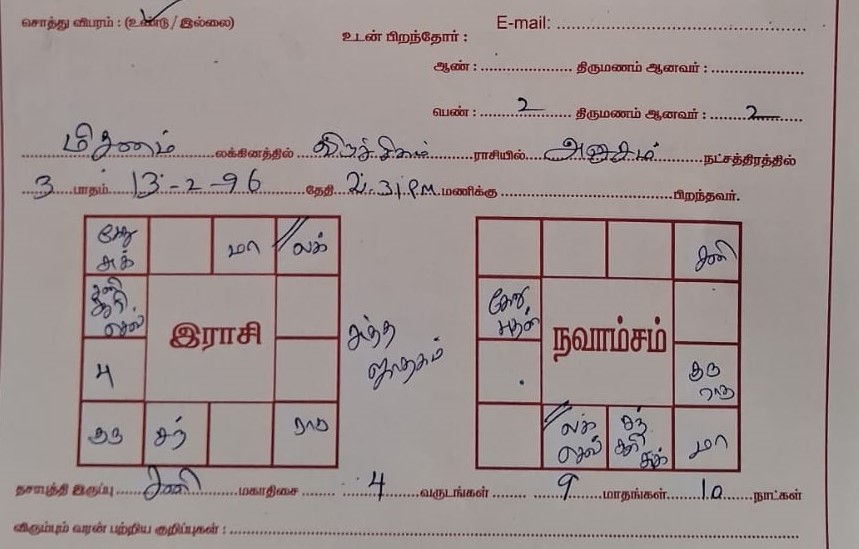 சொத்து விபரம் : (உண்டு / இல்லை)
E-mail:
உடன் பிறந்தோர் :
ஆண் : திருமணம் ஆனவர் :
பெண் : 2 திருமணம் ஆனவர் : 2
மிதுனம் லக்கினத்தில் விருச்சிகம் ராசியில் அனுசம் நட்சத்திரத்தில்
3 பாதம் 13-2-96 தேதி 2.31.P.M மணிக்கு பிறந்தவர்.
கேது மா லக்
சுக்
சனி
சூரி
செவ்
இராசி
பு
குரு சந் ராகு
சுத்த
ஜாதகம்
சனி
கேது
புதன்
நவாம்சம்
குரு
ராகு
லக் சந் மா
செவ் சூரி
சுக்
தசாபுத்தி இருப்பு சனி மகாதிசை 4 வருடங்கள் 9 மாதங்கள் 10 நாட்கள்
விரும்பும் வரன் பற்றிய குறிப்புகள் :